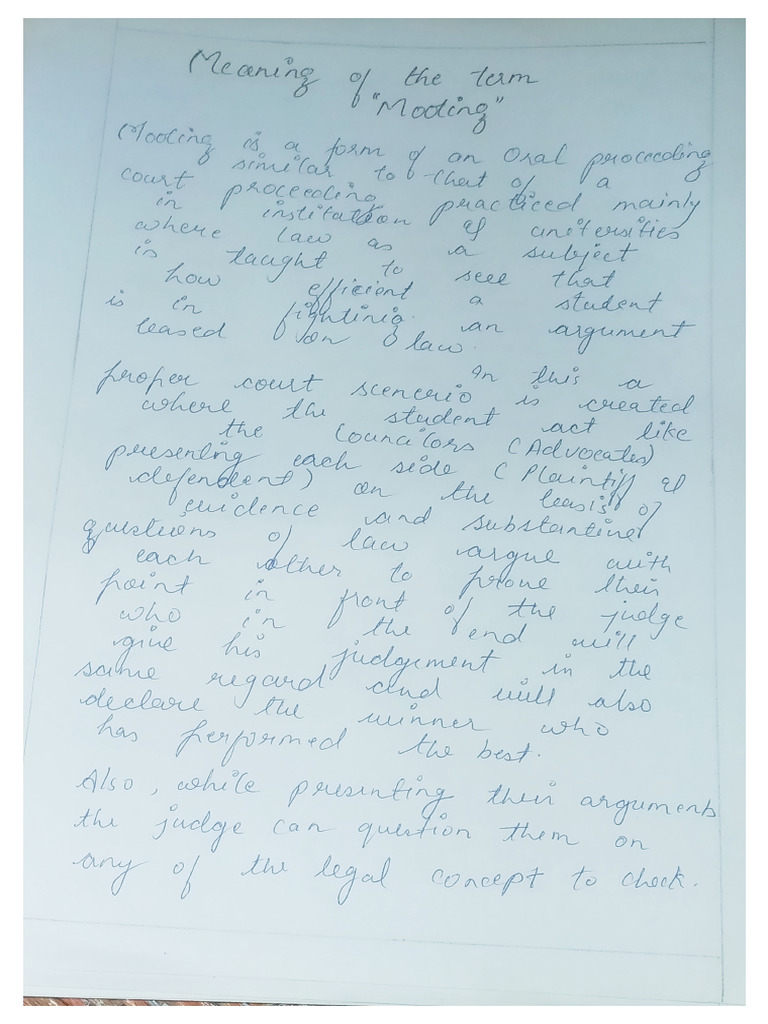 Meaning of the term
"Mooting"
Mooting is a form of an oral proceeding
court similar to that of a
in proceeding practiced mainly
in institution & universities
where law as a subject
is taught to see that
how efficient a student
is in fighting an argument
based on law.
In this a
proper court scenerio is created
where the student act like
the Councilors (Advocates)
presenting each side (Plaintiff &
defendent) on the basis of
evidence and substantive
questions of law argue with
each other to prove their
point in front of the judge
who in the end will
give his judgement in the
same regard and will also
declare the winner who
has performed the best.
Also, while presenting their arguments
the judge can question them on
any of the legal concept to check.